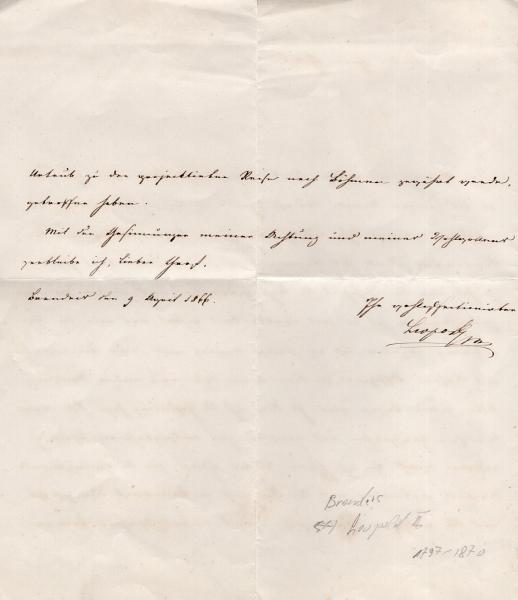 Urlaub zu der projectirten Reise nach Böhmen gewährt werde,
getroffen haben.
Mit den Gesinnungen meiner Achtung und meines Wohlwollens
verbleibe ich, lieber Graf,
Brandeis den 9 April 1866.
Ihr wohlaffectionirter
Leopold
Brandeis
Leopold II
1797-1870